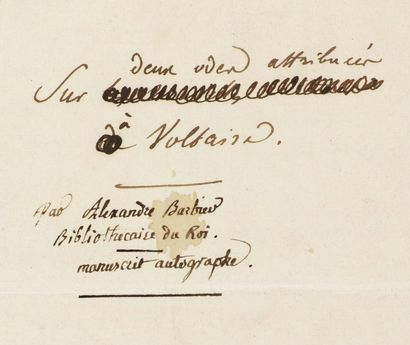 deux odes attribuées
Sur
à Voltaire.
Par Alexandre Barbier
Bibliothécaire du Roi.
manuscrit autographe.